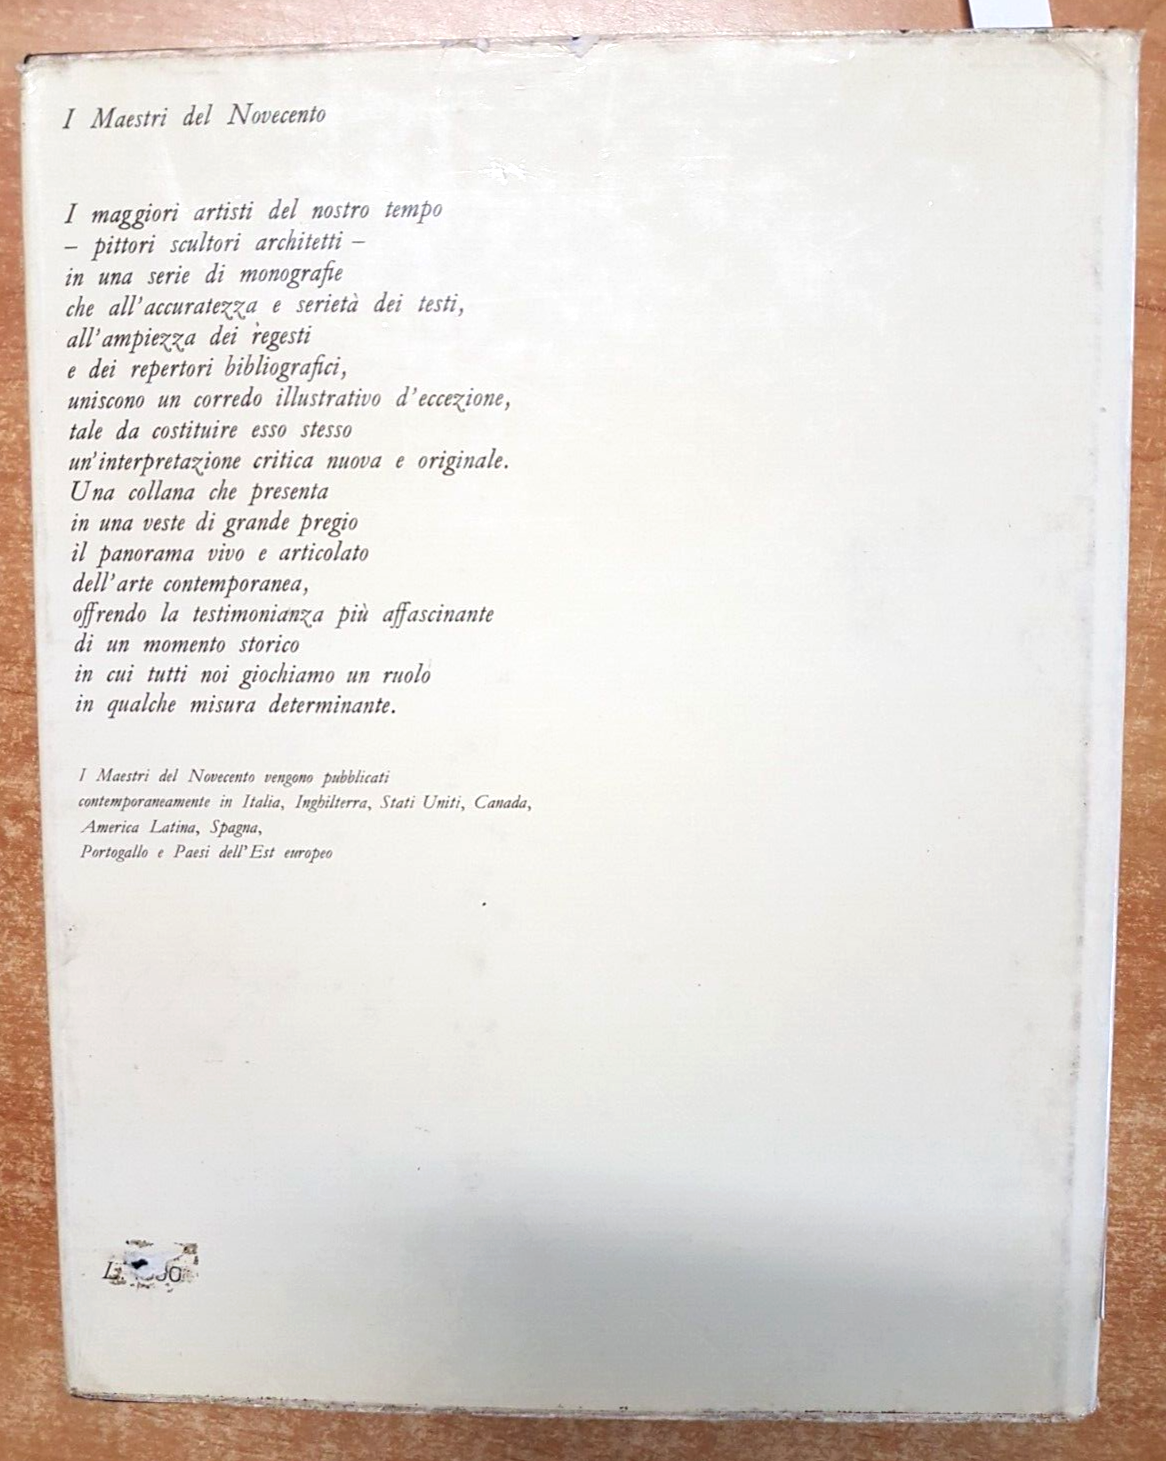 I Maestri del Novecento
I maggiori artisti del nostro tempo
– pittori scultori architetti –
in una serie di monografie
che all'accuratezza e serietà dei testi,
all'ampiezza dei regesti
e dei repertori bibliografici,
uniscono un corredo illustrativo d'eccezione,
tale da costituire esso stesso
un'interpretazione critica nuova e originale.
Una collana che presenta
in una veste di grande pregio
il panorama vivo e articolato
dell'arte contemporanea,
offrendo la testimonianza più affascinante
di un momento storico
in cui tutti noi giochiamo un ruolo
in qualche misura determinante.
I Maestri del Novecento vengono pubblicati
contemporaneamente in Italia, Inghilterra, Stati Uniti, Canada,
America Latina, Spagna,
Portogallo e Paesi dell'Est europeo